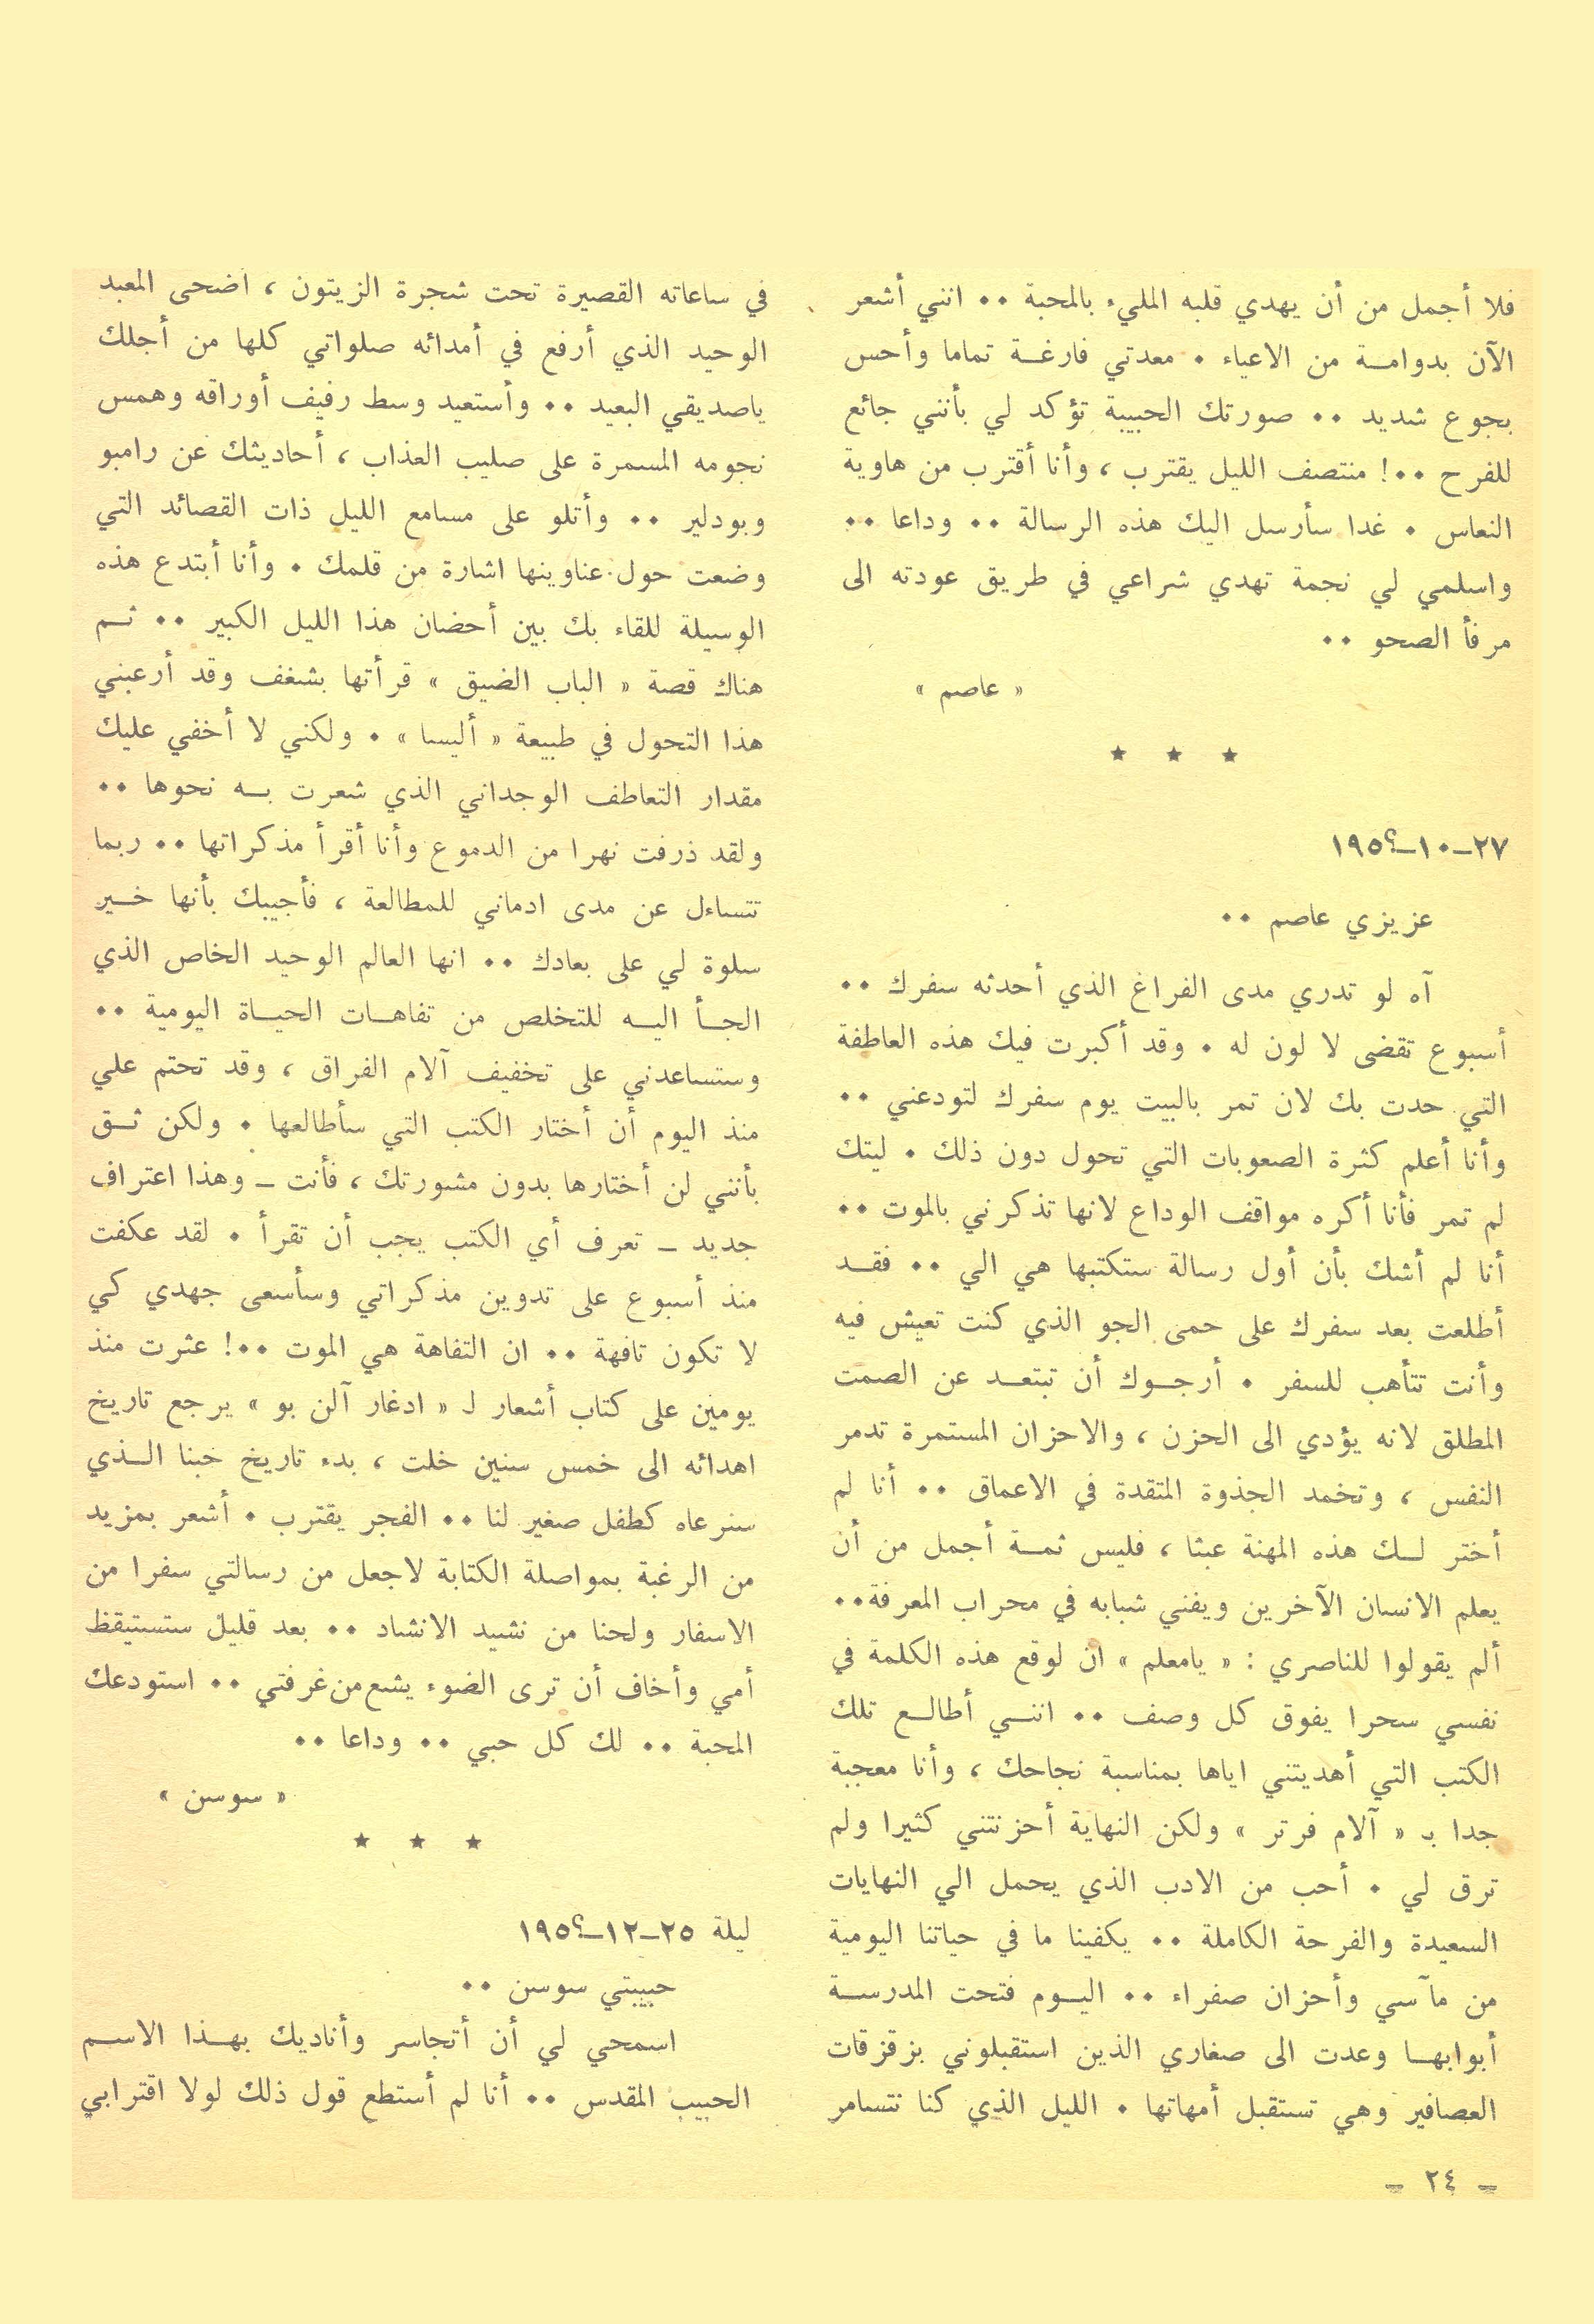 فلا أجمل من أن يهدي قلبه المليء بالمحبة ٠٠ انني أشعر
الآن بدوامة من الاعياء ٠ معدتي فارغة تماما وأحس
بجوع شديد ٠٠ صورتك الحبيبة تؤكد لي بأنني جائع
للفرح ٠٠! منتصف الليل يقترب ، وأنا أقترب من هاوية
النعاس ٠ غدا سأرسل اليك هذه الرسالة ٠٠ وداعا ٠٠
واسلمي لي نجمة تهدي شراعي في طريق عودته الى
مرفأ الصحو ٠٠
« عاصم »
★ ★ ★
٢٧ــ١٠ــ١٩٥؟
عزيزي عاصم ٠٠
آه لو تدري مدى الفراغ الذي أحدثه سفرك ٠٠
أسبوع تقضى لا لون له ٠ وقد أكبرت فيك هذه العاطفة
التي حدت بك لان تمر بالبيت يوم سفرك لتودعني ٠٠
وأنا أعلم كثرة الصعوبات التي تحول دون ذلك ٠ ليتك
لم تمر فأنا أكره مواقف الوداع لانها تذكرني بالموت ٠٠
أنا لم أشك بأن أول رسالة ستكتبها هي الي ٠٠ فقد
أطلعت بعد سفرك على حمى الجو الذي كنت تعيش فيه
وأنت تتأهب للسفر ٠ أرجوك أن تبتعد عن الصمت
المطلق لانه يؤدي الى الحزن ، والاحزان المستمرة تدمر
النفس ، وتخمد الجذوة المتقدة في الاعماق ٠٠ أنا لم
أختر لك هذه المهنة عبثا ، فليس ثمة أجمل من أن
يعلم الانسان الآخرين ويفني شبابه في محراب المعرفة٠٠
ألم يقولوا للناصري : « يامعلم » ان لوقع هذه الكلمة في
نفسي سحرا يفوق كل وصف ٠٠ انني أطالع تلك
الكتب التي أهديتني اياها بمناسبة نجاحك ، وأنا معجبة
جدا بـ « آلام فرتر » ولكن النهاية أحزنتني كثيرا ولم
ترق لي ٠ أحب من الادب الذي يحمل الي النهايات
السعيدة والفرحة الكاملة ٠٠ يكفينا ما في حياتنا اليومية
من مآسي وأحزان صفراء ٠٠ اليوم فتحت المدرسة
أبوابها وعدت الى صغاري الذين استقبلوني بزقزقات
العصافير وهي تستقبل أمهاتها ٠ الليل الذي كنا نتسامر
في ساعاته القصيرة تحت شجرة الزيتون ، اضحى المعبد
الوحيد الذي أرفع في أمدائه صلواتي كلها من أجلك
ياصديقي البعيد ٠٠ وأستعيد وسط رفيف أوراقه وهمس
نجومه المسمرة على صليب العذاب ، أحاديثك عن رامبو
وبودلير ٠٠ وأتلو على مسامع الليل ذات القصائد التي
وضعت حول عناوينها اشارة من قلمك ٠ وأنا أبتدع هذه
الوسيلة للقاء بك بين أحضان هذا الليل الكبير ٠٠ ثم
هناك قصة « الباب الضيق » قرأتها بشغف وقد أرعبني
هذا التحول في طبيعة « أليسا » ٠ ولكني لا أخفي عليك
مقدار التعاطف الوجداني الذي شعرت به نحوها ٠٠
ولقد ذرفت نهرا من الدموع وأنا أقرأ مذكراتها ٠٠ ربما
تتساءل عن مدى ادماني للمطالعة ، فأجيبك بأنها خير
سلوة لي على بعادك ٠٠ انها العالم الوحيد الخاص الذي
الجأ اليه للتخلص من تفاهات الحياة اليومية ٠٠
وستساعدني على تخفيف آلام الفراق ، وقد تحتم علي
منذ اليوم أن أختار الكتب التي سأطالعها ٠ ولكن ثق
بأنني لن أختارها بدون مشورتك ، فأنت ــ وهذا اعتراف
جديد ــ تعرف أي الكتب يجب أن تقرأ ٠ لقد عكفت
منذ أسبوع على تدوين مذكراتي وسأسعى جهدي كي
لا تكون تافهة ٠٠ ان التفاهة هي الموت ٠٠! عثرت منذ
يومين على كتاب أشعار لـ « ادغار آلن بو » يرجع تاريخ
اهدائه الى خمس سنين خلت ، بدء تاريخ حبنا الذي
سنرعاه كطفل صغير لنا ٠٠ الفجر يقترب ٠ أشعر بمزيد
من الرغبة بمواصلة الكتابة لاجعل من رسالتي سفرا من
الاسفار ولحنا من نشيد الانشاد ٠٠ بعد قليل ستستيقظ
أمي وأخاف أن ترى الضوء يشع من غرفتي ٠٠ استودعك
المحبة ٠٠ لك كل حبي ٠٠ وداعا ٠٠
« سوسن »
★ ★ ★
ليلة ٢٥ــ١٢ــ١٩٥؟
حبيبتي سوسن ٠٠
اسمحي لي أن أتجاسر وأناديك بهذا الاسم
الحبيب المقدس ٠٠ أنا لم أستطع قول ذلك لولا اقترابي
ــ ٢٤ ــ